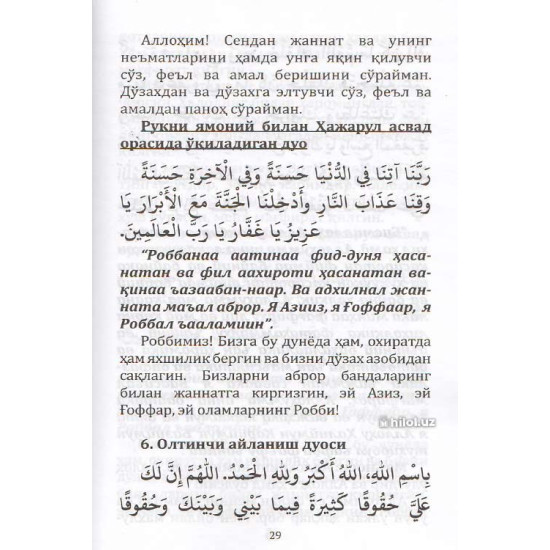 Аллоҳим! Сендан жаннат ва унинг
неъматларини ҳамда унга яқин қилувчи
сўз, феъл ва амал беришини сўрайман.
Дўзахдан ва дўзахга элтувчи сўз, феъл ва
амалдан паноҳ сўрайман.
Рукни ямоний билан Ҳажарул асвад
орасида ўқиладиган дуо
رَبَّنَا آتِنَا فِي الدُّنْيَا حَسَنَةً وَفِي الْآخِرَةِ حَسَنَةً
وَقِنَا عَذَابَ النَّارِ وَأَدْخِلْنَا الْجَنَّةَ مَعَ الْأَبْرَارِ يَا
عَزِيزُ يَا غَفَّارُ يَا رَبَّ الْعَالَمِينَ.
“Роббанаа аатинаа фид-дуня ҳаса-
натан ва фил аахироти ҳасанатан ва-
қинаа ъазаабан-наар. Ва адхилнаа жан-
ната маъал аброр. Я Азииз, я Ғоффаар, я
Роббал ъааламиин”.
Роббимиз! Бизга бу дунёда ҳам, охиратда
ҳам яхшилик бергин ва бизни дўзах азобидан
сақлагин. Бизларни аброр бандаларинг
билан жаннатга киргизгин, эй Азиз, эй
Ғоффар, эй оламларнинг Робби!
hilol.uz
6. Олтинчи айланиш дуоси
بِاسْمِ اللهِ، اللهُ أَكْبَرُ وَلِلَّهِ الْحَمْدُ. اللَّهُمَّ إِنَّ لَكَ
عَلَيَّ حُقُوقًا كَثِيرَةً فِيمَا بَيْنِي وَبَيْنَكَ وَحُقُوقًا
29